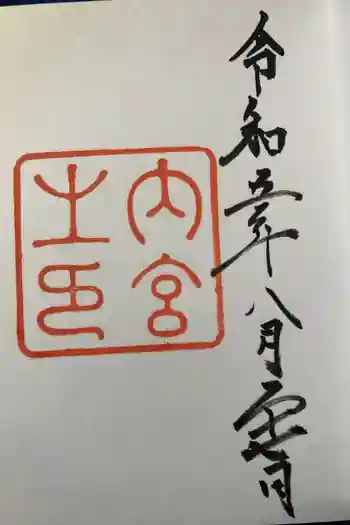 令和五年八月 日
内宮
之印